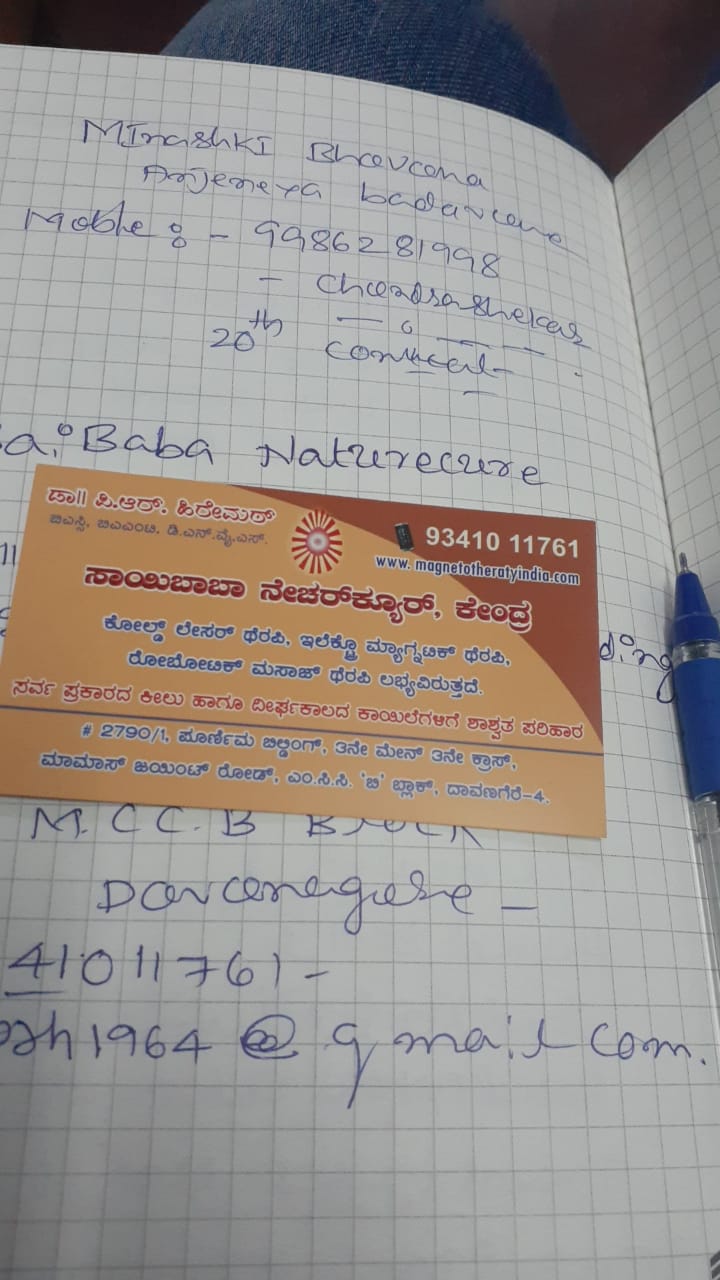 MInashki Bhavcana
Anjeneya badavcane
Moble:- 9986281998
- Chandrashekar
20th Conucal-
a: Baba Naturecure
ಡಾ|| ಪಿ.ಆರ್. ಹಿರೇಮಠ್
ಬಿಎಸ್ಸಿ, ಬಿಎಎಂಟಿ. ಡಿ.ಎನ್.ವೈ.ಎಸ್.
93410 11761
www. magnetotheratyindia.com
ಸಾಯಿಬಾಬಾ ನೇಚರ್‌ಕ್ಯೂರ್, ಕೇಂದ್ರ
ಕೋಲ್ಡ್ ಲೇಸರ್ ಥೆರಪಿ, ಇಲೆಕ್ಟ್ರೊ ಮ್ಯಾಗ್ನಟಿಕ್ ಥೆರಪಿ,
ರೋಬೋಟಿಕ್ ಮಸಾಜ್ ಥೆರಪಿ ಲಭ್ಯವಿರುತ್ತದೆ.
ding
ಸರ್ವ ಪ್ರಕಾರದ ಕೀಲು ಹಾಗೂ ದೀರ್ಘಕಾಲದ ಕಾಯಿಲೆಗಳಿಗೆ ಶಾಶ್ವತ ಪರಿಹಾರ
# 2790/1, ಪೂರ್ಣಿಮ ಬಿಲ್ಡಿಂಗ್, 3ನೇ ಮೇನ್ 3ನೇ ಕ್ರಾಸ್,
ಮಾಮಾಸ್ ಜಯಿಂಟ್ ರೋಡ್, ಎಂ.ಸಿ.ಸಿ. 'ಬಿ' ಬ್ಲಾಕ್, ದಾವಣಗೆರೆ-4.
M.C C. B Block
Davcenegere -
41011761-
sh1964@gmail com.